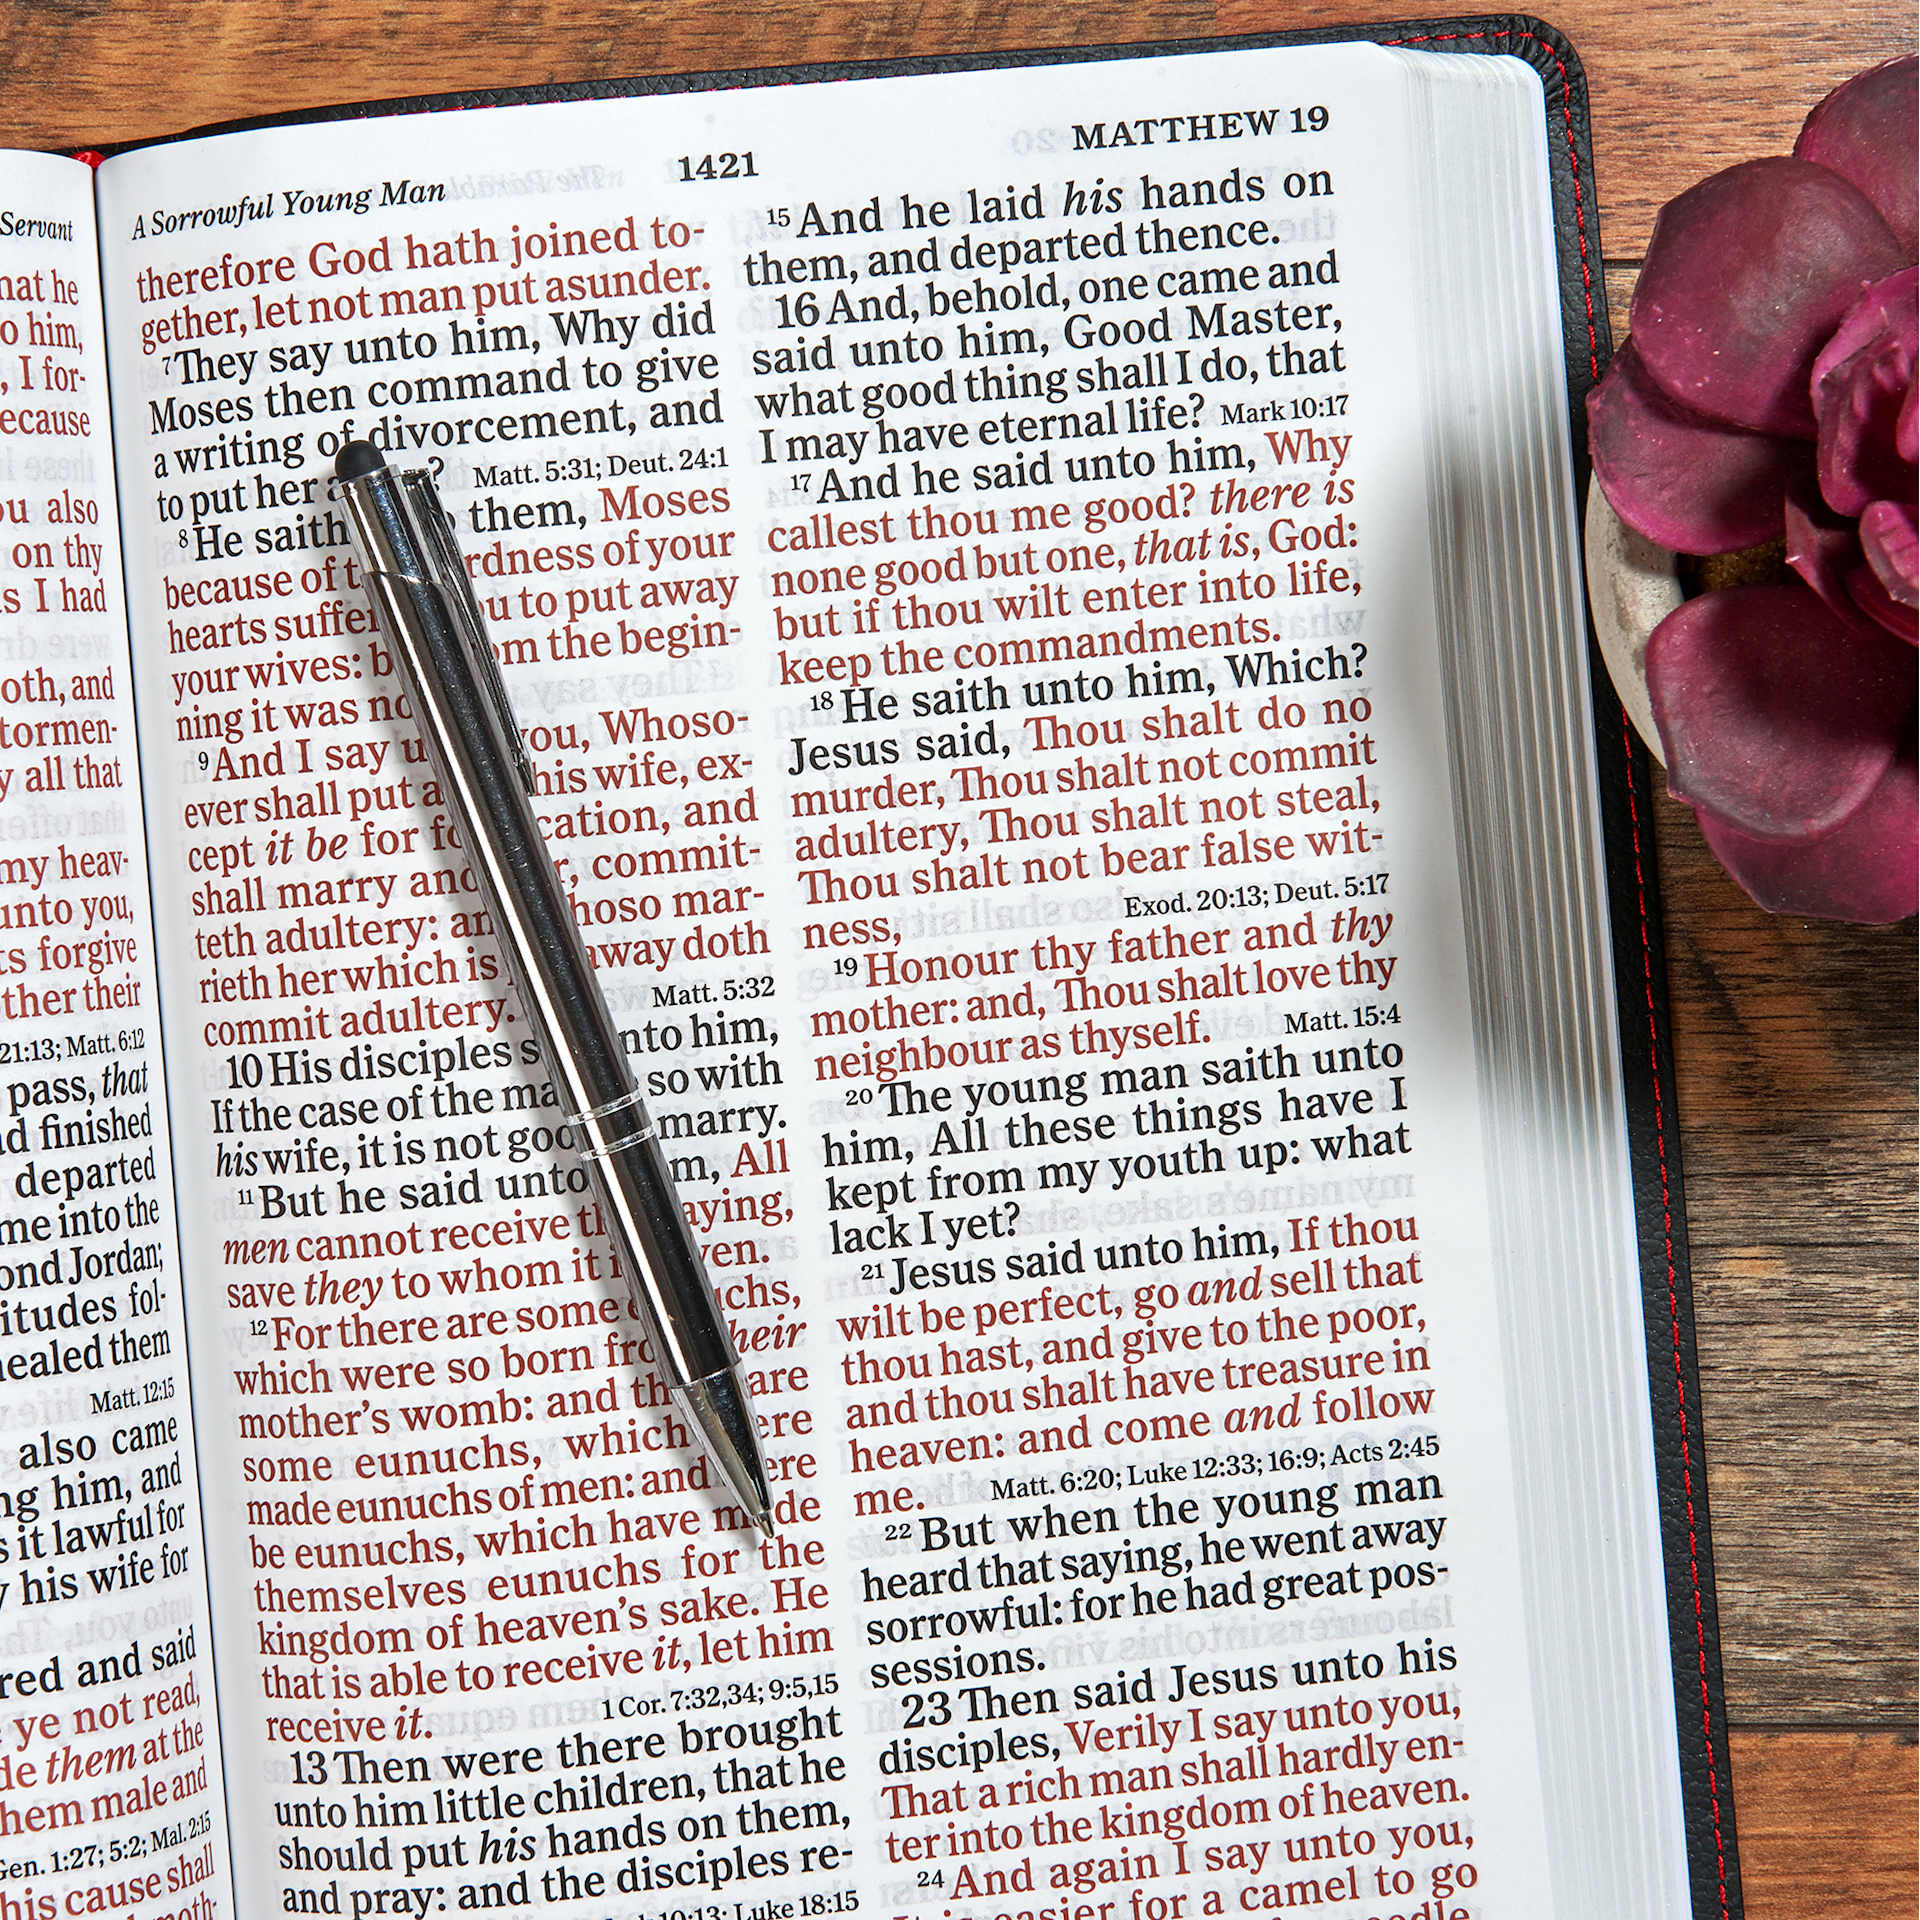 Servant
hat he
o him,
, I for-
ecause
ou also
on thy
s I had
oth, and
tormen-
y all that
my heav-
unto you,
ts forgive
ther their
21:13; Matt. 6:12
pass, that
d finished
departed
me into the
ond Jordan;
itudes fol-
healed them
Matt. 12:15
also came
ng him, and
s it lawful for
y his wife for
red and said
ye not read,
de them at the
hem male and
Gen. 1:27; 5:2; Mal. 2:15
his cause shall
moth-
A Sorrowful Young Man
1421
MATTHEW 19
therefore God hath joined to-
gether, let not man put asunder.
7 They say unto him, Why did
Moses then command to give
a writing of divorcement, and
to put her ?
Matt. 5:31; Deut. 24:1
8 He saith them, Moses
because of rdness of your
hearts suffe u to put away
your wives: b om the begin-
ning it was no
9 And I say u you, Whoso-
ever shall put a his wife, ex-
cept it be for fo cation, and
shall marry ano r, commit-
teth adultery: an hoso mar-
rieth her which is away doth
commit adultery.
Matt. 5:32
10 His disciples s nto him,
If the case of the ma so with
his wife, it is not goo marry.
11 But he said unto m, All
men cannot receive th aying,
save they to whom it i ven.
12 For there are some e chs,
which were so born fro heir
mother's womb: and th are
some eunuchs, which ere
made eunuchs of men: and ere
be eunuchs, which have made
themselves eunuchs for the
kingdom of heaven's sake. He
that is able to receive it, let him
receive it.
1 Cor. 7:32,34; 9:5,15
13 Then were there brought
unto him little children, that he
should put his hands on them,
and pray: and the disciples re-
10:13; Luke 18:15
15 And he laid his hands on
them, and departed thence.
16 And, behold, one came and
said unto him, Good Master,
what good thing shall I do, that
I may have eternal life? Mark 10:17
17 And he said unto him, Why
callest thou me good? there is
none good but one, that is, God:
but if thou wilt enter into life,
keep the commandments.
18 He saith unto him, Which?
Jesus said, Thou shalt do no
murder, Thou shalt not commit
adultery, Thou shalt not steal,
Thou shalt not bear false wit-
ness,
Exod. 20:13; Deut. 5:17
19 Honour thy father and thy
mother: and, Thou shalt love thy
neighbour as thyself. Matt. 15:4
20 The young man saith unto
him, All these things have I
kept from my youth up: what
lack I yet?
21 Jesus said unto him, If thou
wilt be perfect, go and sell that
thou hast, and give to the poor,
and thou shalt have treasure in
heaven: and come and follow
me. Matt. 6:20; Luke 12:33; 16:9; Acts 2:45
22 But when the young man
heard that saying, he went away
sorrowful: for he had great pos-
sessions.
23 Then said Jesus unto his
disciples, Verily I say unto you,
That a rich man shall hardly en-
ter into the kingdom of heaven.
24 And again I say unto you,
It is easier for a camel to go